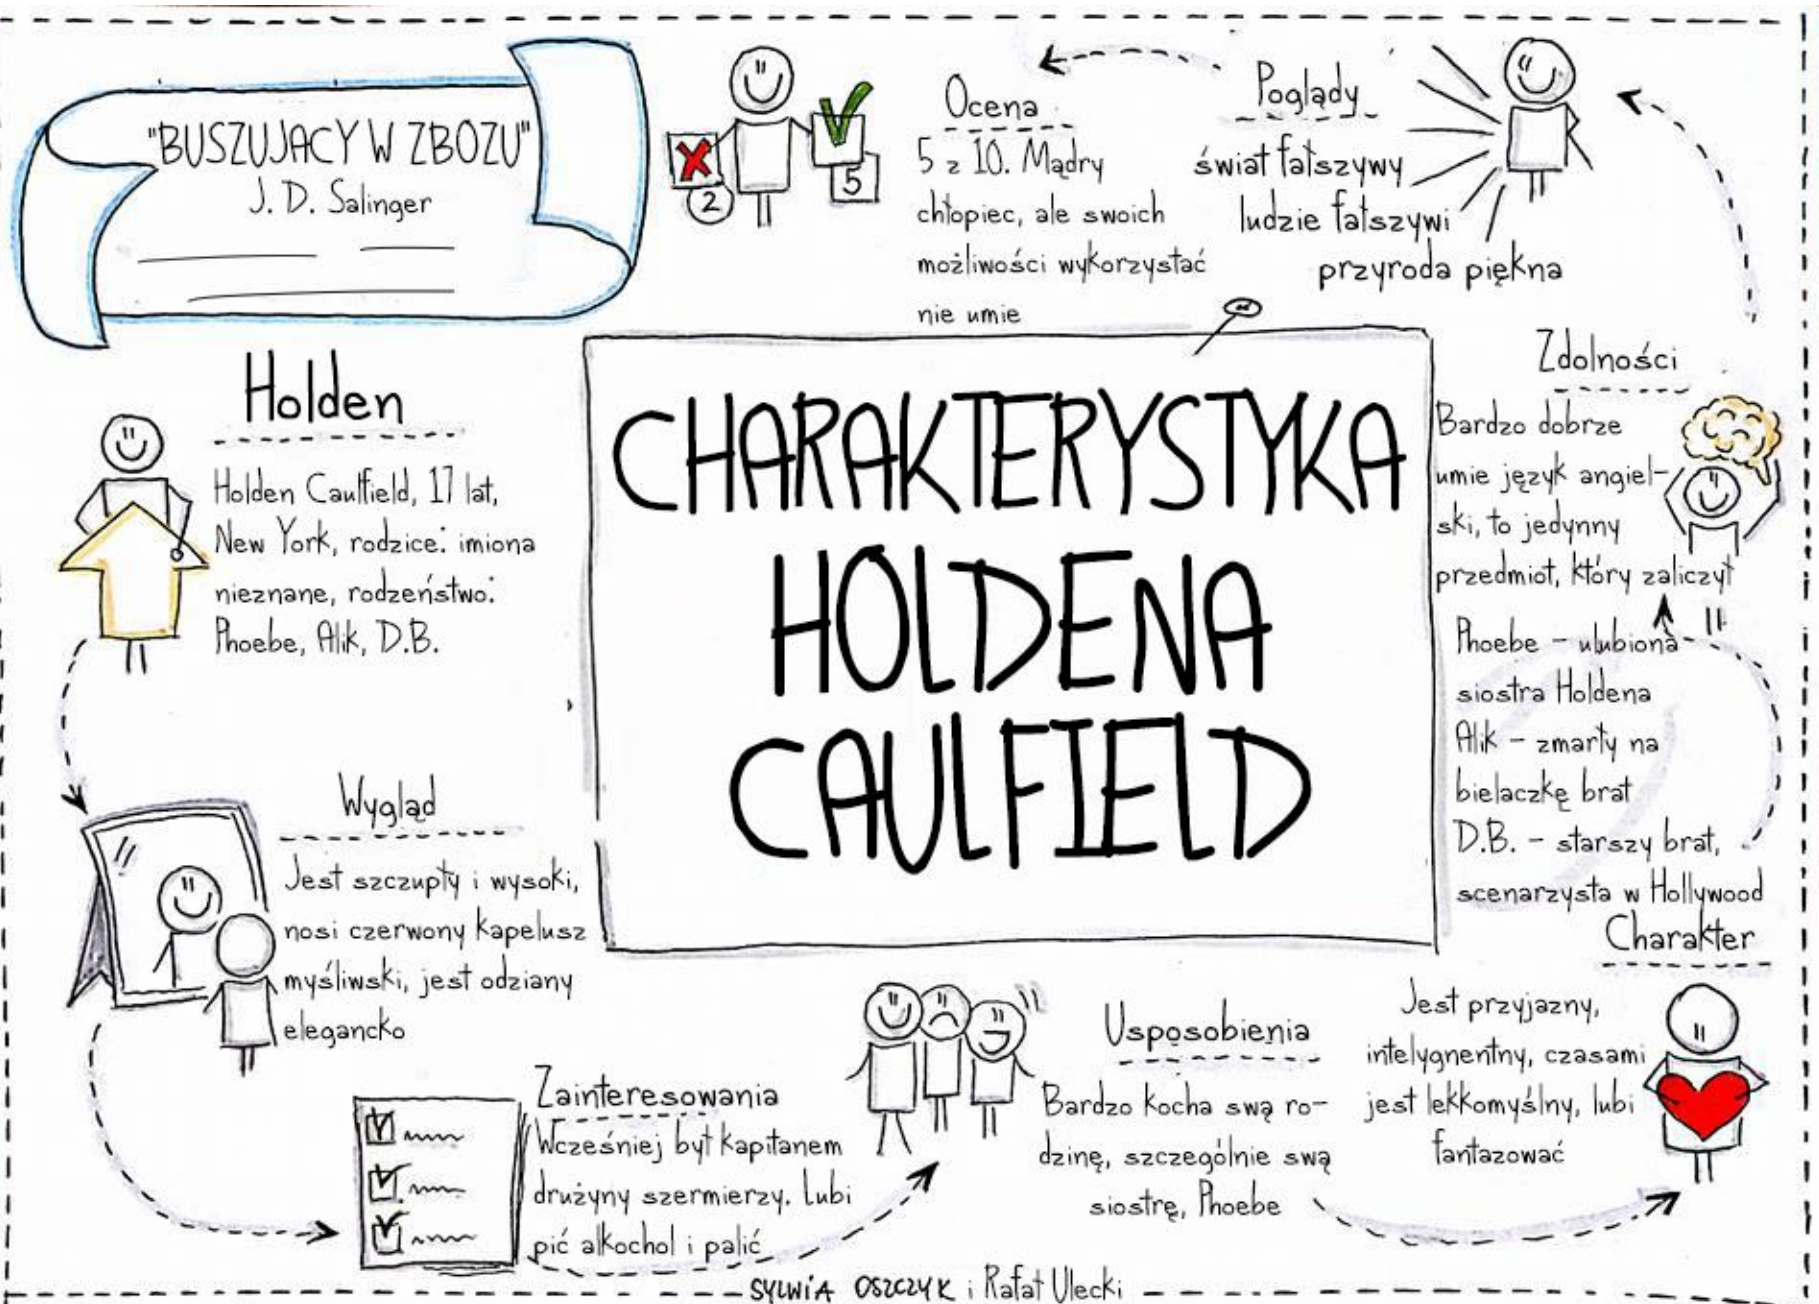 "BUSZUJACY W ZBOZU"
J. D. Salinger
2
5
Ocena
5 z 10. Mądry
chłopiec, ale swoich
możliwości wykorzystać
nie umie
Poglądy
świat fałszywy
ludzie fałszywi
przyroda piękna
Holden
Holden Caulfield, 17 lat,
New York, rodzice: imiona
nieznane, rodzeństwo:
Phoebe, Alik, D.B.
CHARAKTERYSTYKA
HOLDENA
CAULFIELD
Zdolności
Bardzo dobrze
umie język angiel-
ski, to jedynny
przedmiot, który zaliczył
Phoebe - ulubiona
siostra Holdena
Alik - zmarły na
bielaczkę brat
D.B. - starszy brat,
scenarzysta w Hollywood
Wygląd
Jest szczupły i wysoki,
nosi czerwony kapelusz
myśliwski, jest odziany
elegancko
Zainteresowania
Wcześniej był kapitanem
drużyny szermierzy. Lubi
pić alkochol i palić
Usposobienia
Bardzo kocha swą ro-
dzinę, szczególnie swą
siostrę, Phoebe
Charakter
Jest przyjazny,
intelygnentny, czasami
jest lekkomyślny, lubi
fantazować
SYLWIA OSZCZYK i Rafał Ulecki